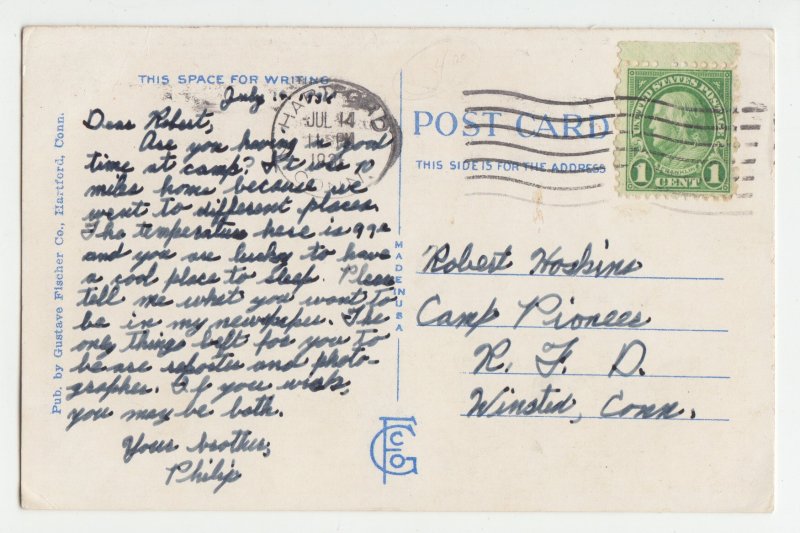 THIS SPACE FOR WRITING
July
Dear Robert,
Are you having a good
time at camp? It was
miles home because we
went to different places.
The temperature here is 99°
and you are lucky to have
a cool place to sleep. Please
tell me what you want to
be in my newspaper. The
only things left for you to
be are reporter and photo-
grapher. If you wish,
you may be both.
Your brother,
Philip
Pub. by Gustave Fischer Co., Hartford, Conn.
MADE IN USA
HARTFORD
JUL 14
CONN.
POST CARD
THIS SIDE IS FOR THE ADDRESS
UNITED STATES POSTAGE
FRANKLIN
1 CENT 1
Robert Hoskins
Camp Pioneer
R. F. D.
Winsted, Conn.